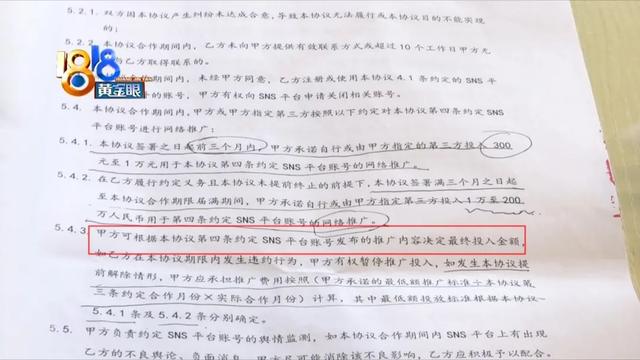 5.2.1. 双方因本协议产生纠纷未达成合意,导致本协议无法履行或本协议目的不能实现
的;
5.2.2. 本协议合作期间内,乙方未向甲方提供有效联系方式或超过10个工作日甲方无
与乙方取得联系的。
期间内,未经甲方同意,乙方注册或使用本协议4.1条约定的SNS
外的账号,甲方有权向SNS平台申请关闭相关账号。
1818
黄金眼
5.4. 本协议合作期间内,甲方或甲方指定第三方按照以下约定对本协议第四条约定SNS
平台账号进行网络推广:
5.4.1. 本协议签署之日起前三个月内,甲方承诺自行或由甲方指定的第三方投入300
元至1万元用于本协议第四条约定SNS平台账号的网络推广。
5.4.2. 在乙方履行约定义务且本协议未提前终止的前提下,本协议签署满三个月之日起
至本协议合作期限届满期间,甲方承诺自行或由甲方指定第三方投入1万至200
万人民币用于第四条约定SNS平台账号的网络推广。
5.4.3 甲方可根据本协议第四条约定SNS平台账号发布的推广内容决定最终投入金额,
如乙方在本协议期限内发生违约行为,甲方有权暂停推广投入,如发生本协议提
前解除情形,甲方应承担推广费用按照(甲方承诺的最低额推广标准÷本协议第
三条约定合作月份×实际合作月份)计算,其中最低额投放标准根据本协议
5.4.1条及5.4.2条分别确定。
5.5. 甲方负责约定SNS平台账号的舆情监测,如本协议合作期间内SNS平台上有出现
乙方的不良舆论、负面消息,甲方应尽可能消除该不良影响,乙方应积极予以配合。